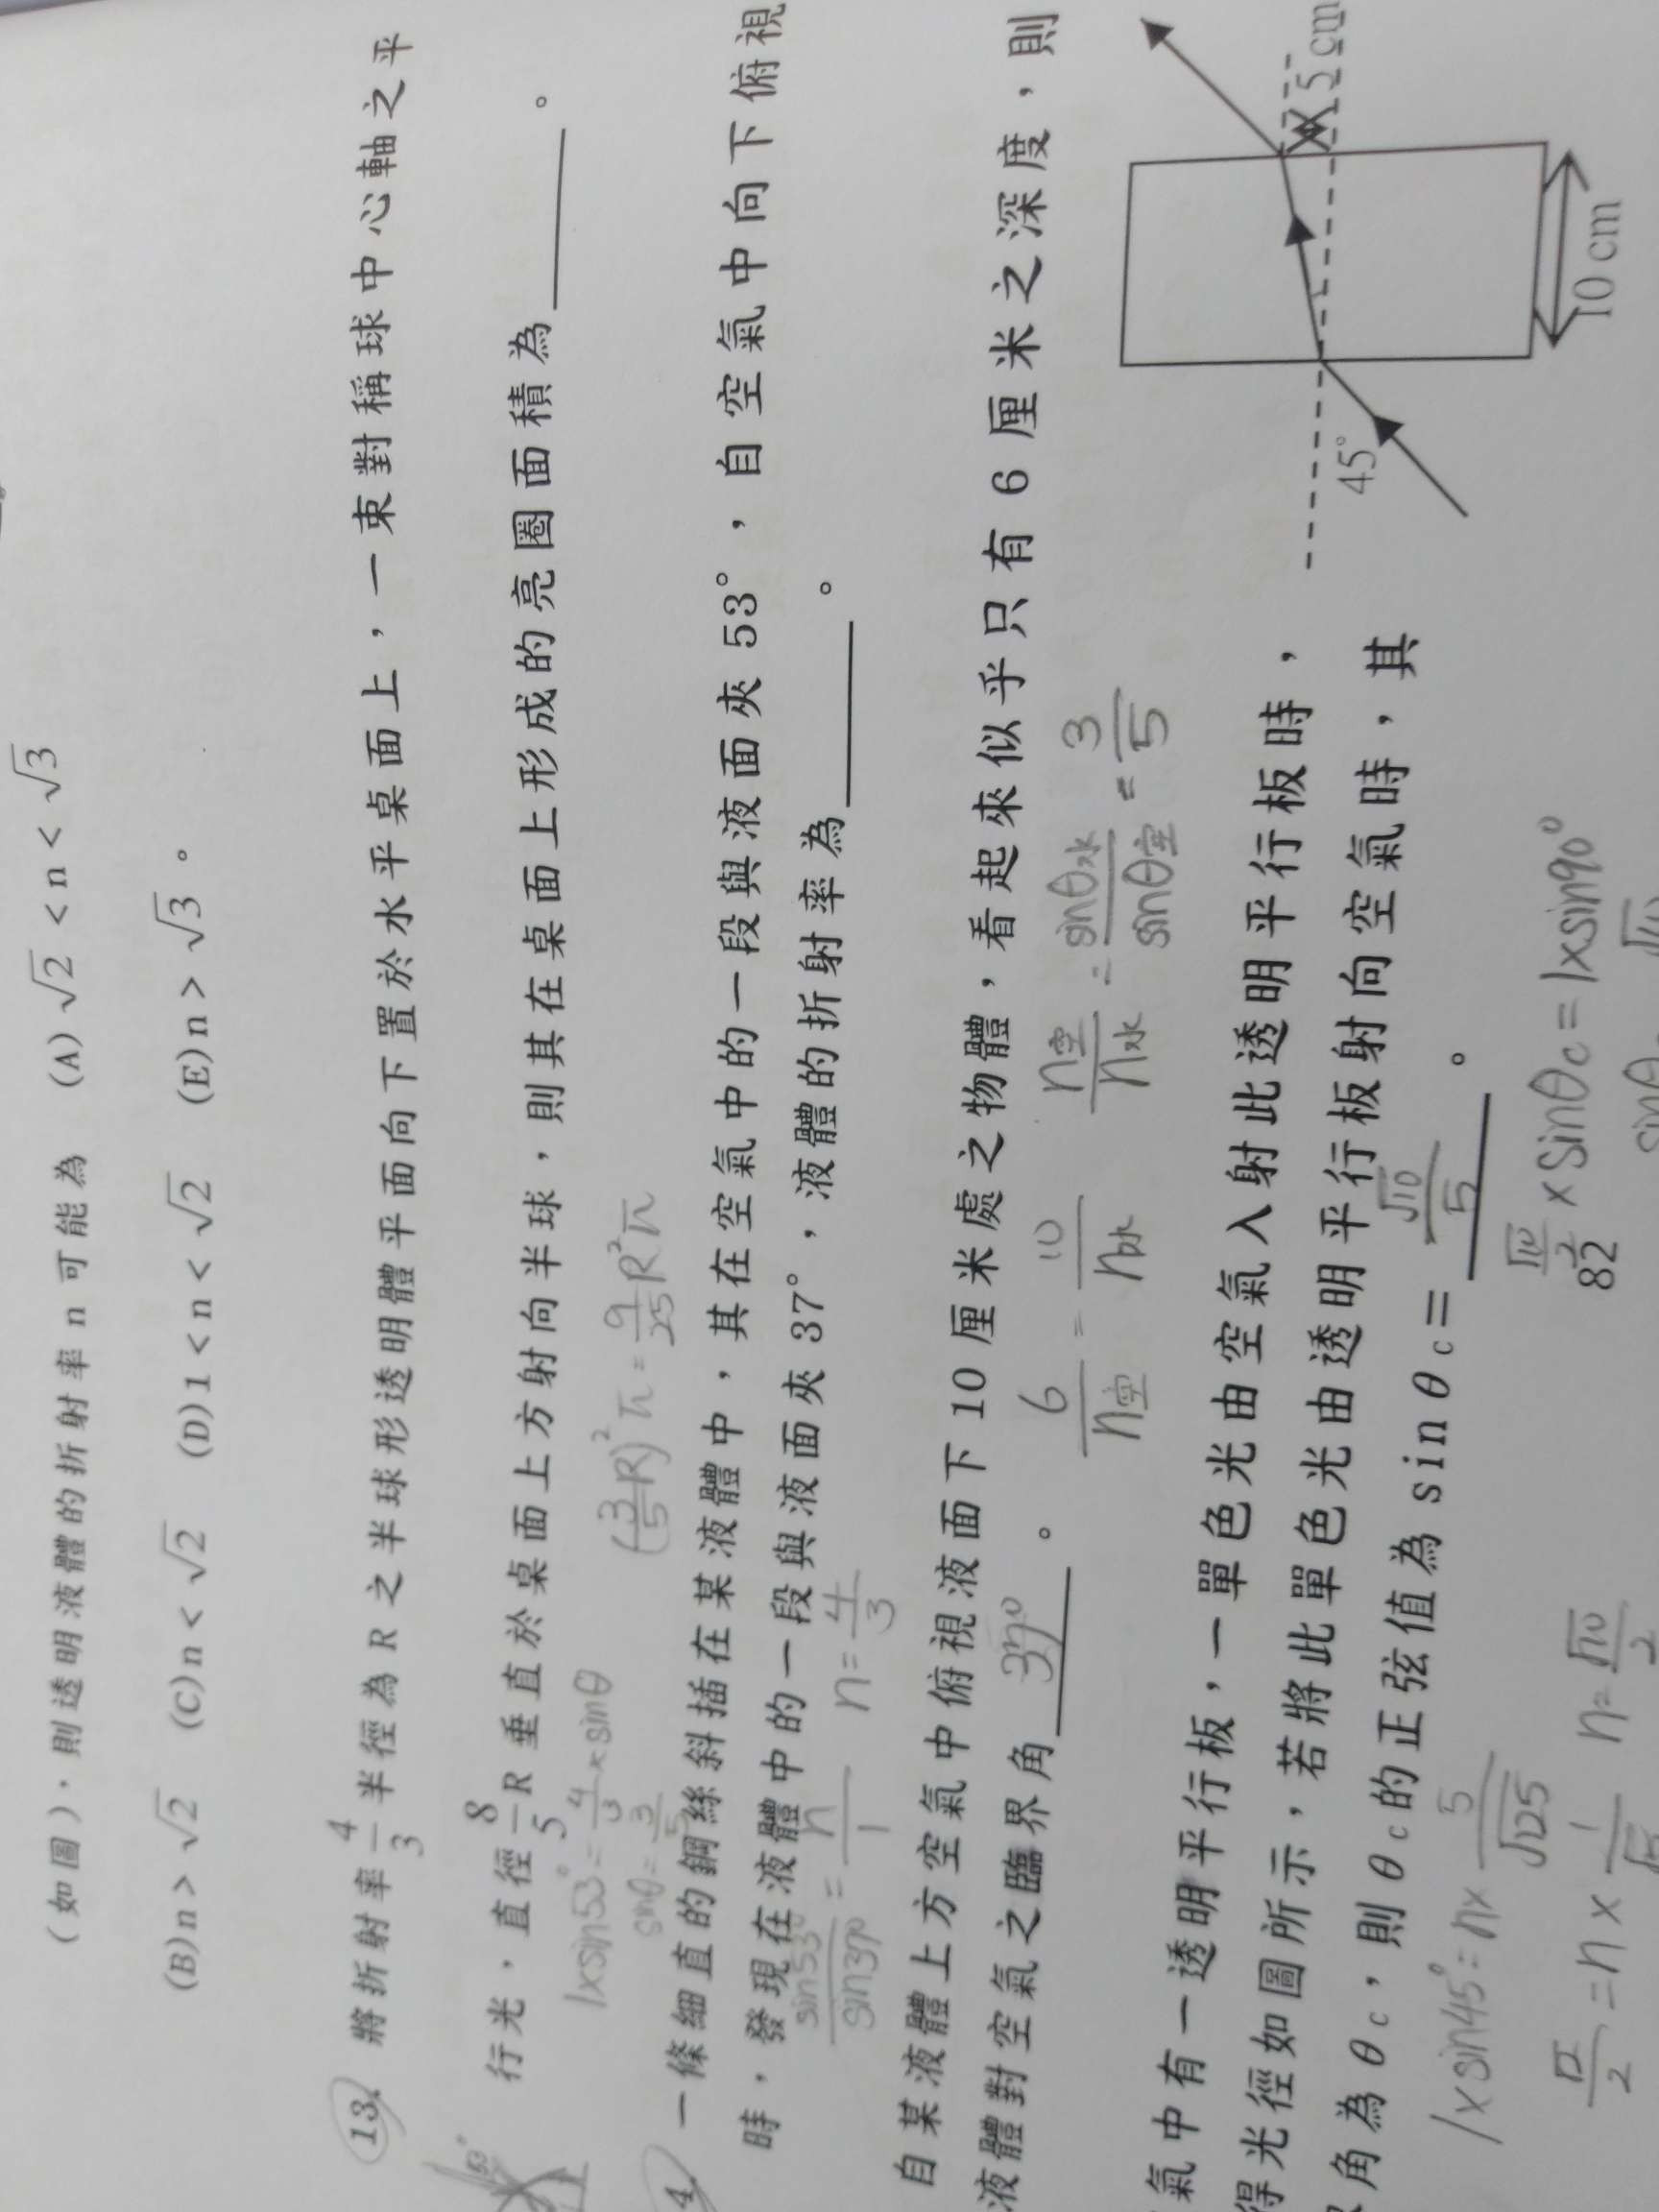 (如圖)，則透明液體的折射率 n 可能為 (A) √2 < n < √3
(B) n > √2 (C) n < √2 (D) 1 < n < √2 (E) n > √3 。
13. 將折射率 4/3 半徑為 R 之半球形透明體平面向下置於水平桌面上，一束對稱球中心軸之平
行光，直徑 8/5 R 垂直於桌面上方射向半球，則其在桌面上形成的亮圈面積為______。
53°
1×sin53° = 4/3 × sinθ
sinθ = 3/5
(3/5 R)² π = 9/25 R² π
4. 一條細直的鋼絲斜插在某液體中，其在空氣中的一段與液面夾 53°，自空氣中向下俯視
時，發現在液體中的一段與液面夾 37°，液體的折射率為______。
sin53°/sin37° = n/1 n = 4/3
自某液體上方空氣中俯視液面下 10 厘米處之物體，看起來似乎只有 6 厘米之深度，則
液體對空氣之臨界角 37° 。
6/n空 = 10/n水 n空/n水 = sinθ水/sinθ空 = 3/5
氣中有一透明平行板，一單色光由空氣入射此透明平行板時，
得光徑如圖所示，若將此單色光由透明平行板射向空氣時，其
角為 θc，則 θc 的正弦值為 sin θc = √10/5 。
45°
5 cm
10 cm
1×sin45° = n× 5/√125
√2/2 = n × 1/√5 n = √10/2
√10/2 × sinθc = 1×sin90°
82
sinθ